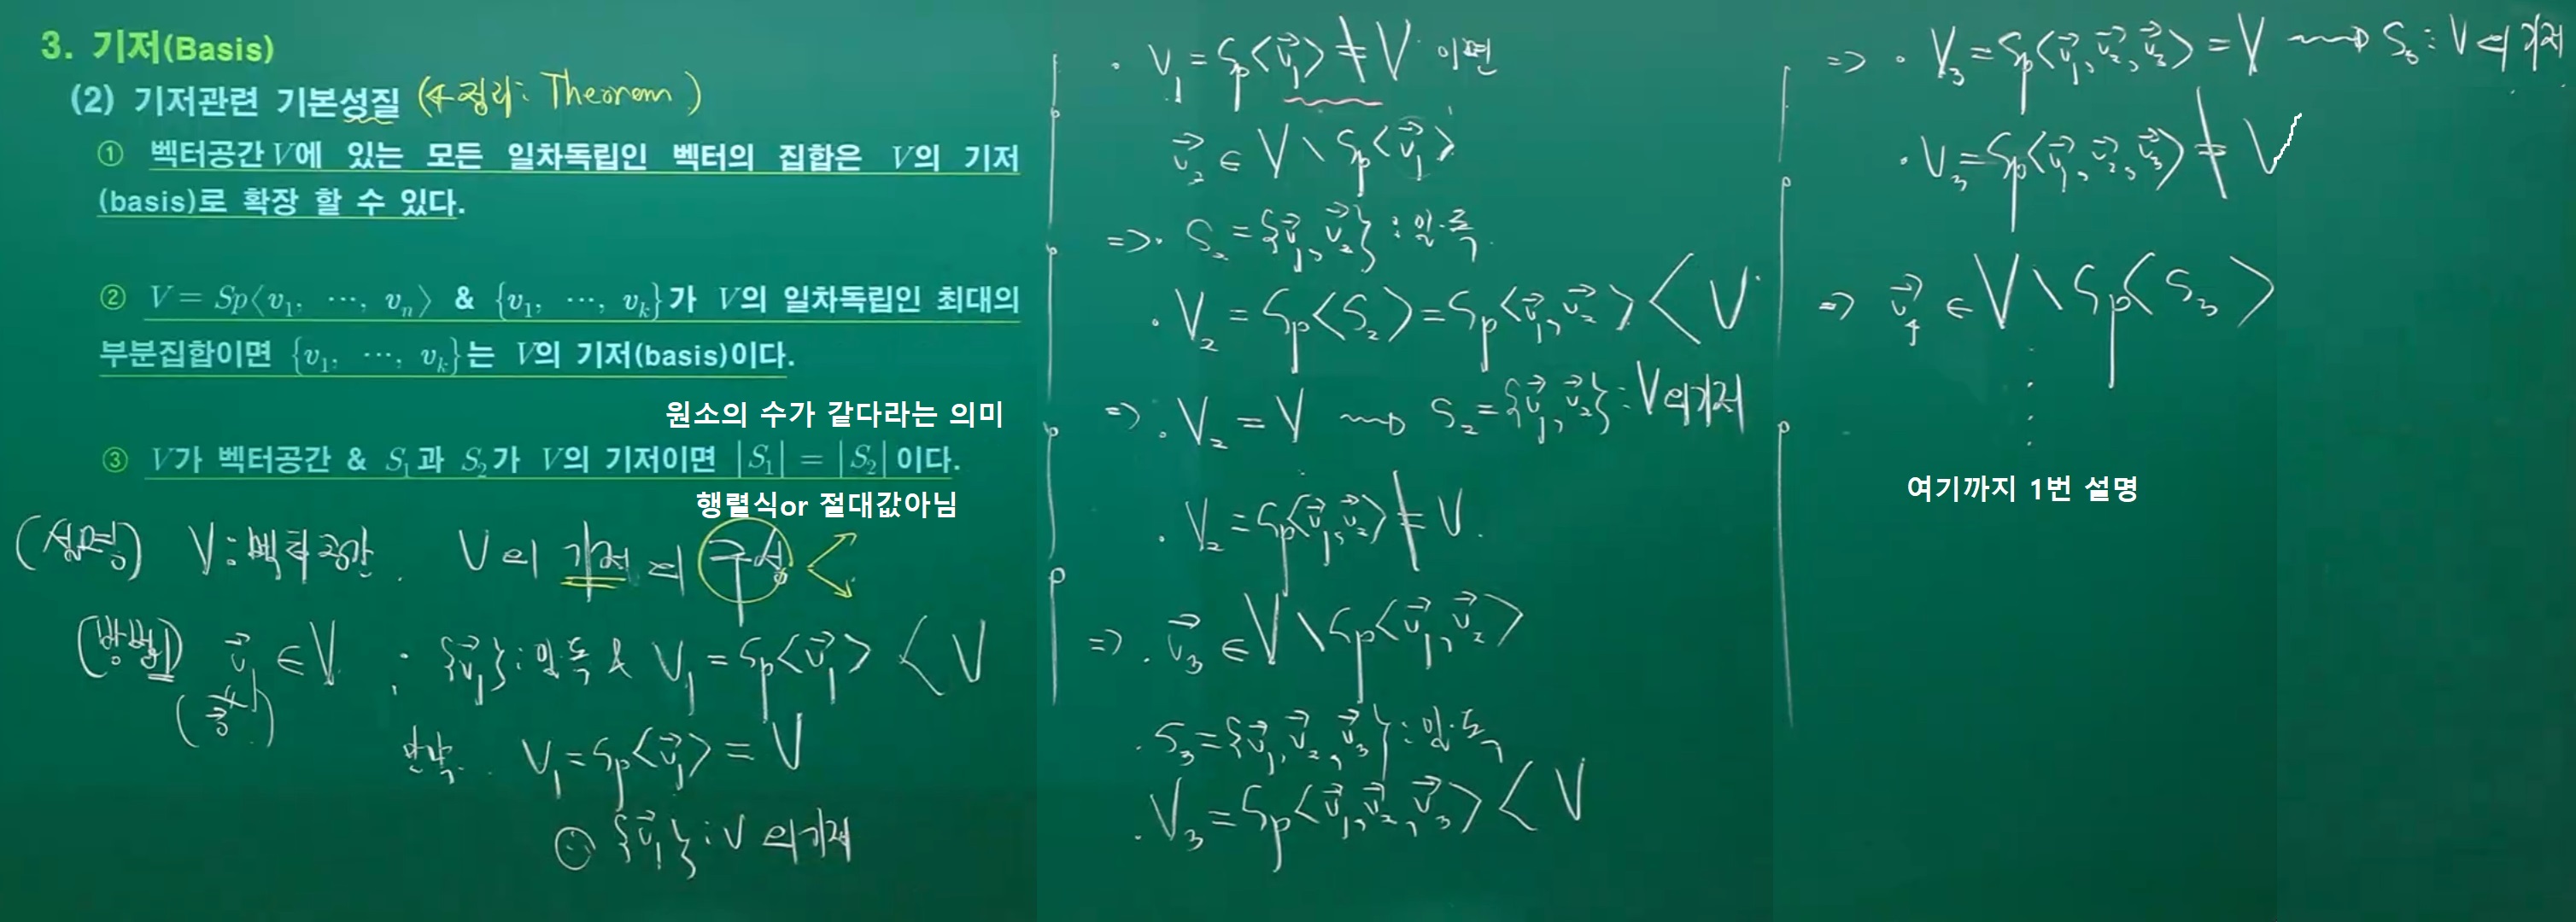 3. 기저(Basis)
(2) 기저관련 기본성질 (← 정리 : Theorem)
① 벡터공간 V에 있는 모든 일차독립인 벡터의 집합은 V의 기저
(basis)로 확장 할 수 있다.
② V = Sp⟨v₁, ⋯, vₙ⟩ & {v₁, ⋯, vₖ}가 V의 일차독립인 최대의
부분집합이면 {v₁, ⋯, vₖ}는 V의 기저(basis)이다.
원소의 수가 같다라는 의미
③ V가 벡터공간 & S₁과 S₂가 V의 기저이면 |S₁| = |S₂| 이다.
행렬식or 절대값아님
(설명) V : 벡터공간. V의 기저의 구성
(방법1) v⃗₁ ∈ V ; {v⃗₁} : 일·독 & V₁ = Sp⟨v⃗₁⟩ < V
만약. V₁ = Sp⟨v⃗₁⟩ = V
{v⃗₁} : V의 기저
· V₁ = Sp⟨v⃗₁⟩ ≠ V 이면
v⃗₂ ∈ V \ Sp⟨v⃗₁⟩
=> · S₂ = {v⃗₁, v⃗₂} : 일·독
· V₂ = Sp⟨S₂⟩ = Sp⟨v⃗₁, v⃗₂⟩ < V
=> · V₂ = V ⇝ S₂ = {v⃗₁, v⃗₂} : V의 기저
· V₂ = Sp⟨v⃗₁, v⃗₂⟩ ≠ V.
=> · v⃗₃ ∈ V \ Sp⟨v⃗₁, v⃗₂⟩
· S₃ = {v⃗₁, v⃗₂, v⃗₃} : 일·독
· V₃ = Sp⟨v⃗₁, v⃗₂, v⃗₃⟩ < V
=> · V₃ = Sp⟨v⃗₁, v⃗₂, v⃗₃⟩ = V ⇝ S₃ : V의 기저
· V₃ = Sp⟨v⃗₁, v⃗₂, v⃗₃⟩ ≠ V
=> v⃗₄ ∈ V \ Sp⟨S₃⟩
⋮
여기까지 1번 설명